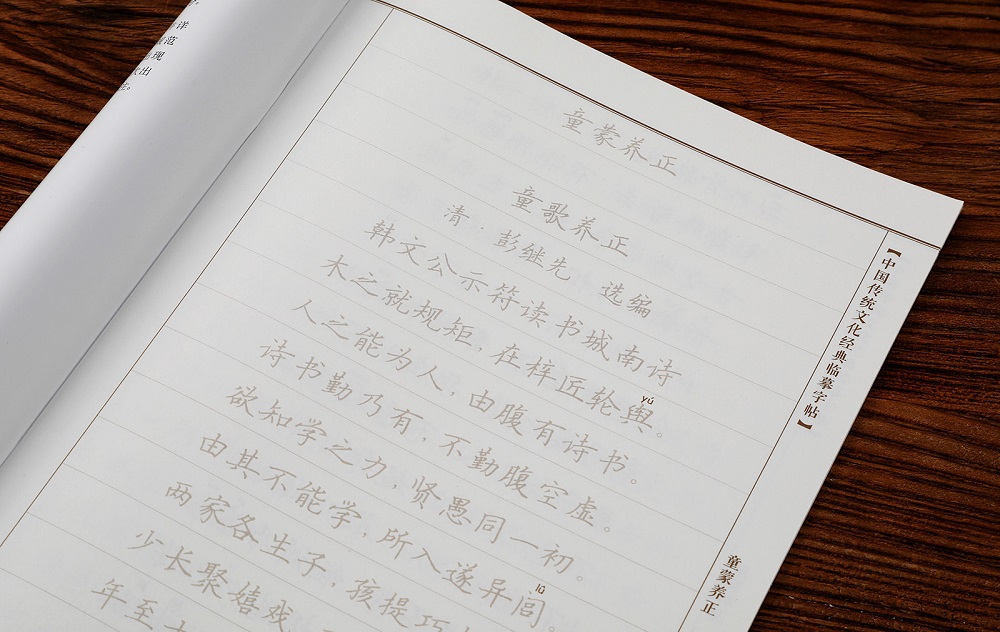 详
范
现
出
童蒙养正
童歌养正
清·彭继先 选编
韩文公示符读书城南诗
木之就规矩，在梓匠轮舆。
yú
人之能为人，由腹有诗书。
诗书勤乃有，不勤腹空虚。
欲知学之力，贤愚同一初。
由其不能学，所入遂异闾。
lǘ
两家各生子，孩提巧
少长聚嬉戏，
年至
【中国传统文化经典临摹字帖】
童蒙养正